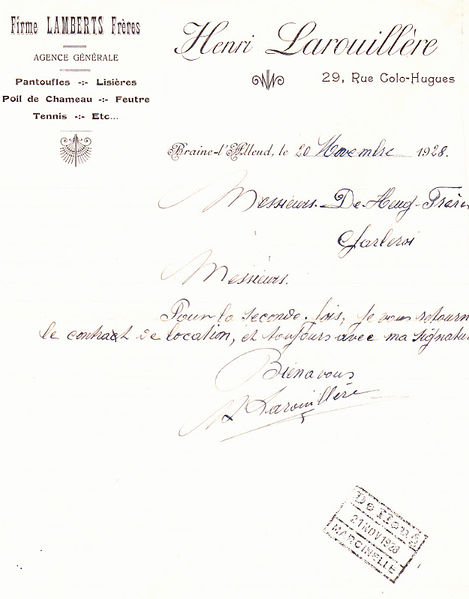 Firme LAMBERTS Frères
AGENCE GÉNÉRALE
Pantoufles -:- Lisières
Poil de Chameau -:- Feutre
Tennis -:- Etc...
Henri Larouillère
29, Rue Colo-Hugues
Braine-l'Alleud, le 20 Novembre 1928.
Messieurs De Heug Frères
Charleroi
Messieurs.
Pour la seconde fois, je vous retourn
le contract de location, et toujours avec ma signatu
Bien a vous
H Larouillère
De Heug
21 NOV 1928
MARCINELLE